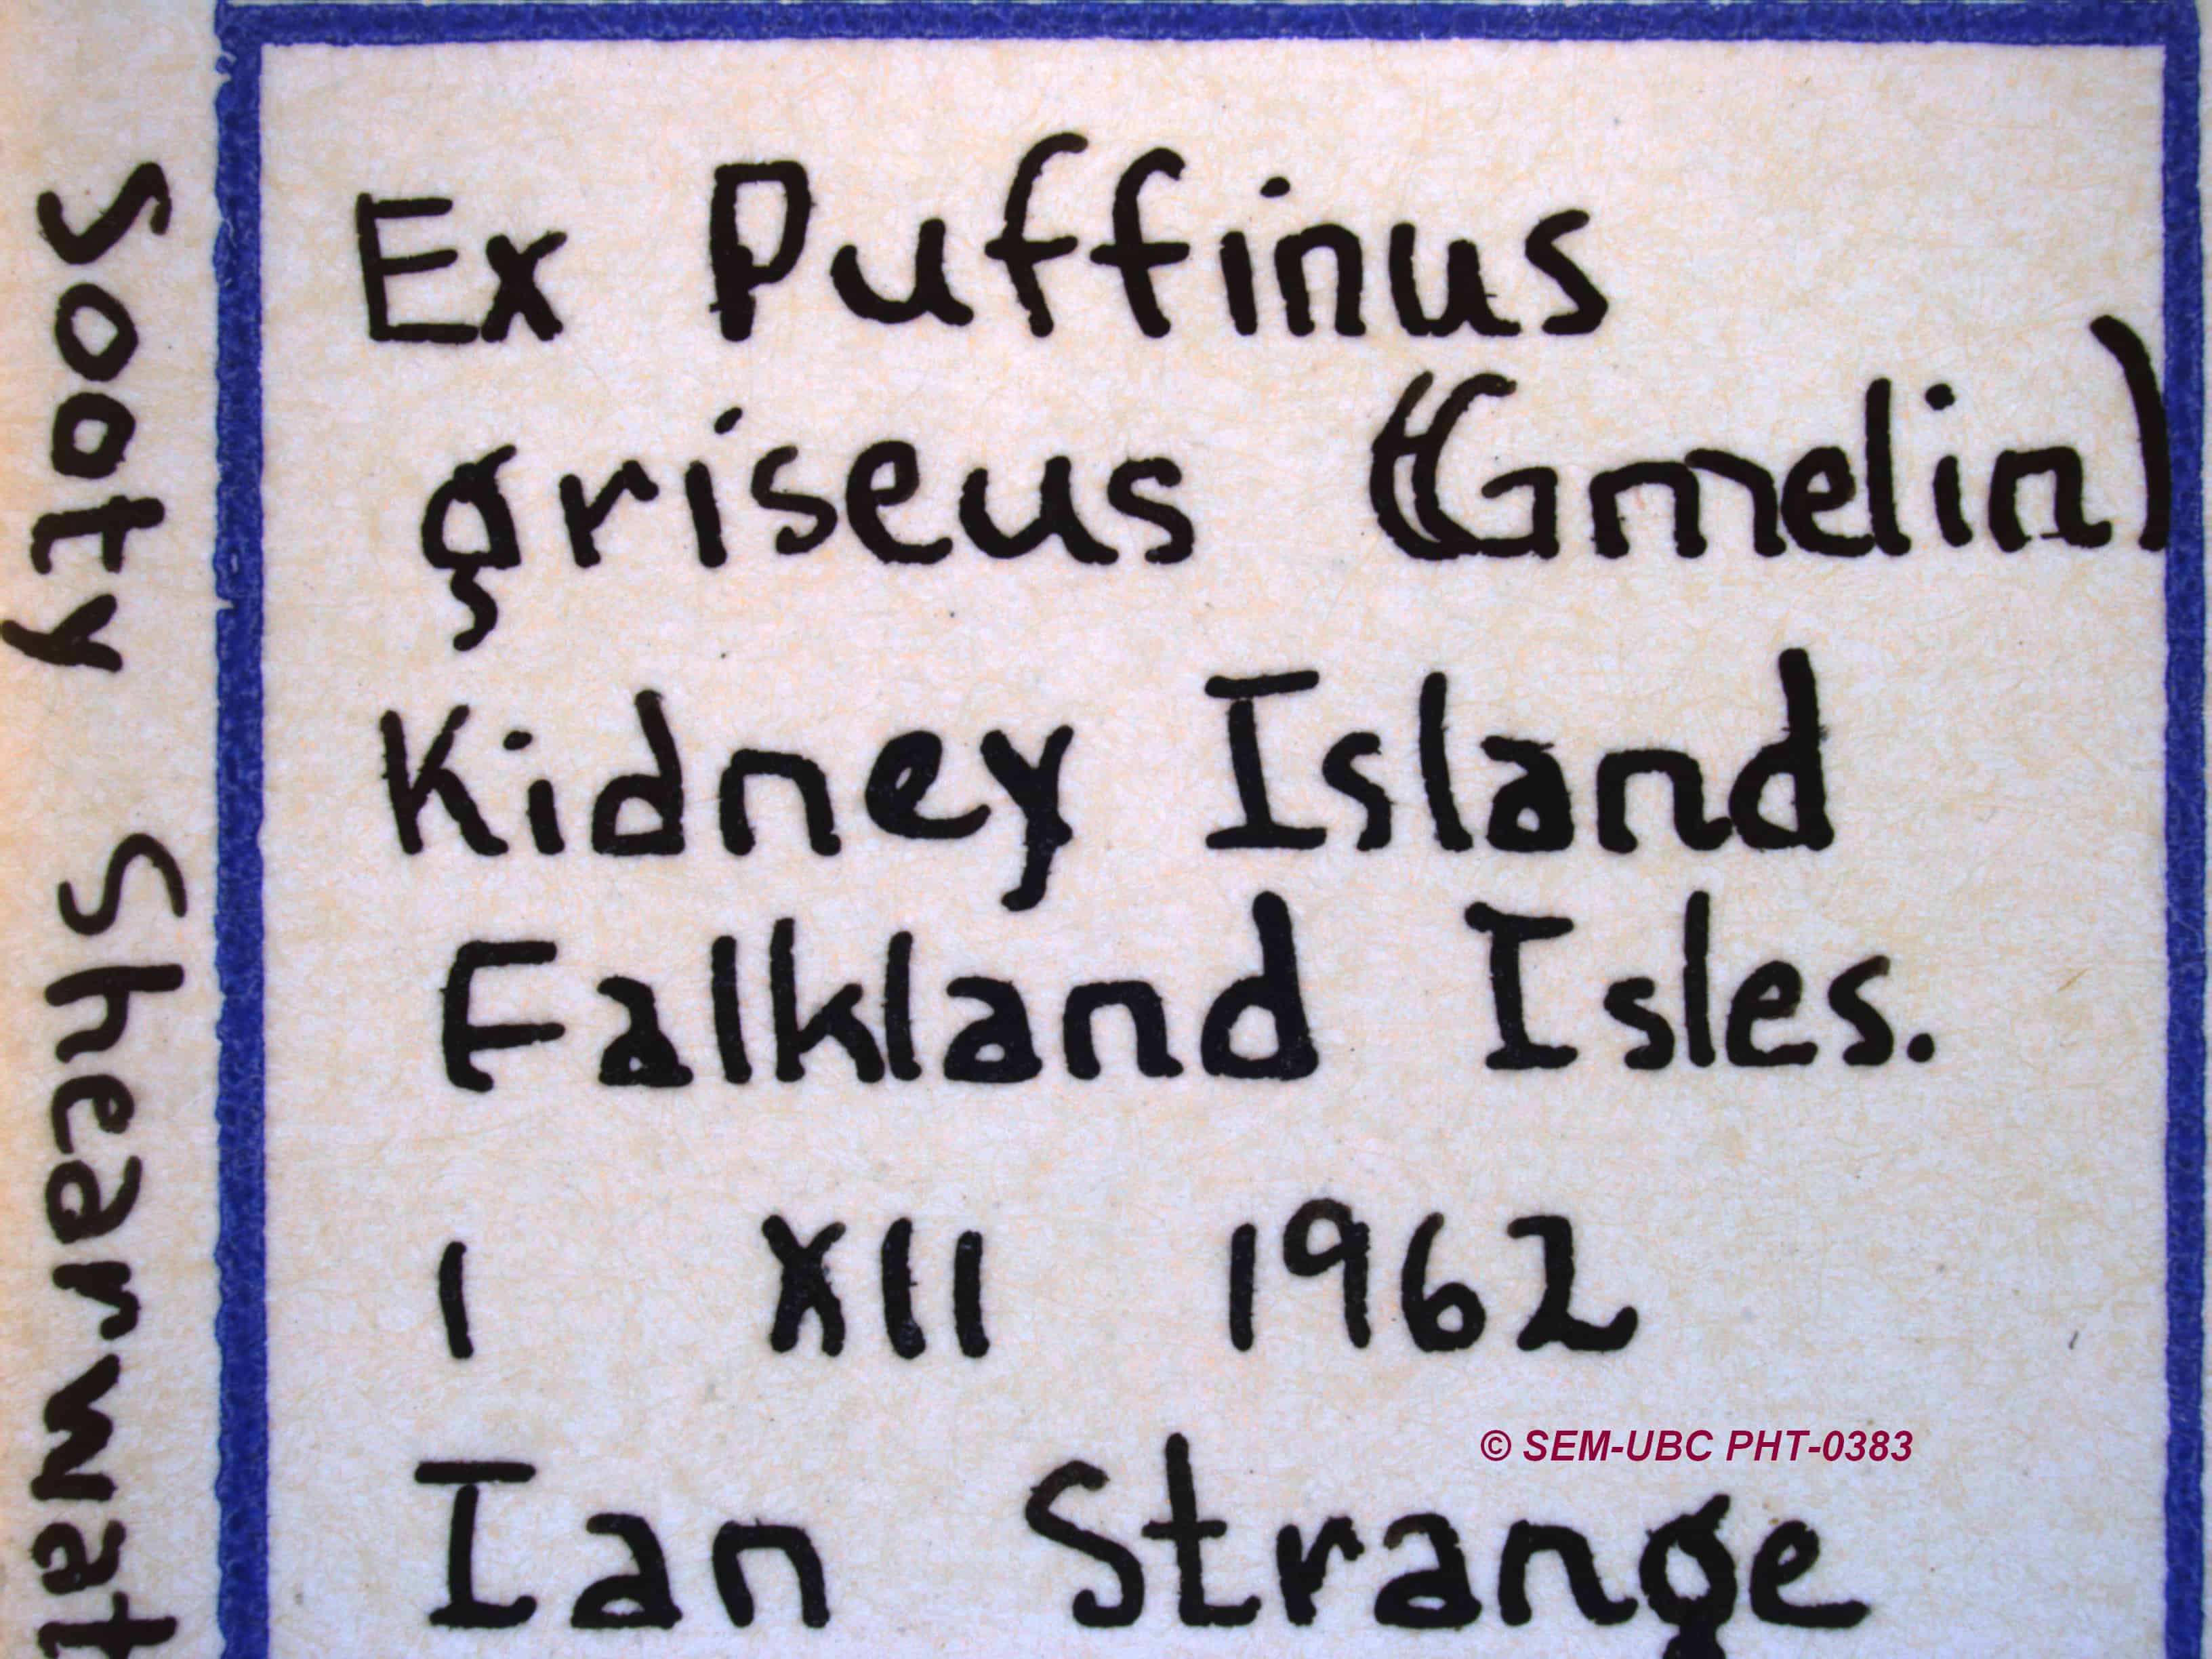 Sooty Shearwat
Ex Puffinus
griseus (Gmelin)
Kidney Island
Falkland Isles.
1 XII 1962
© SEM-UBC PHT-0383
Ian Strange